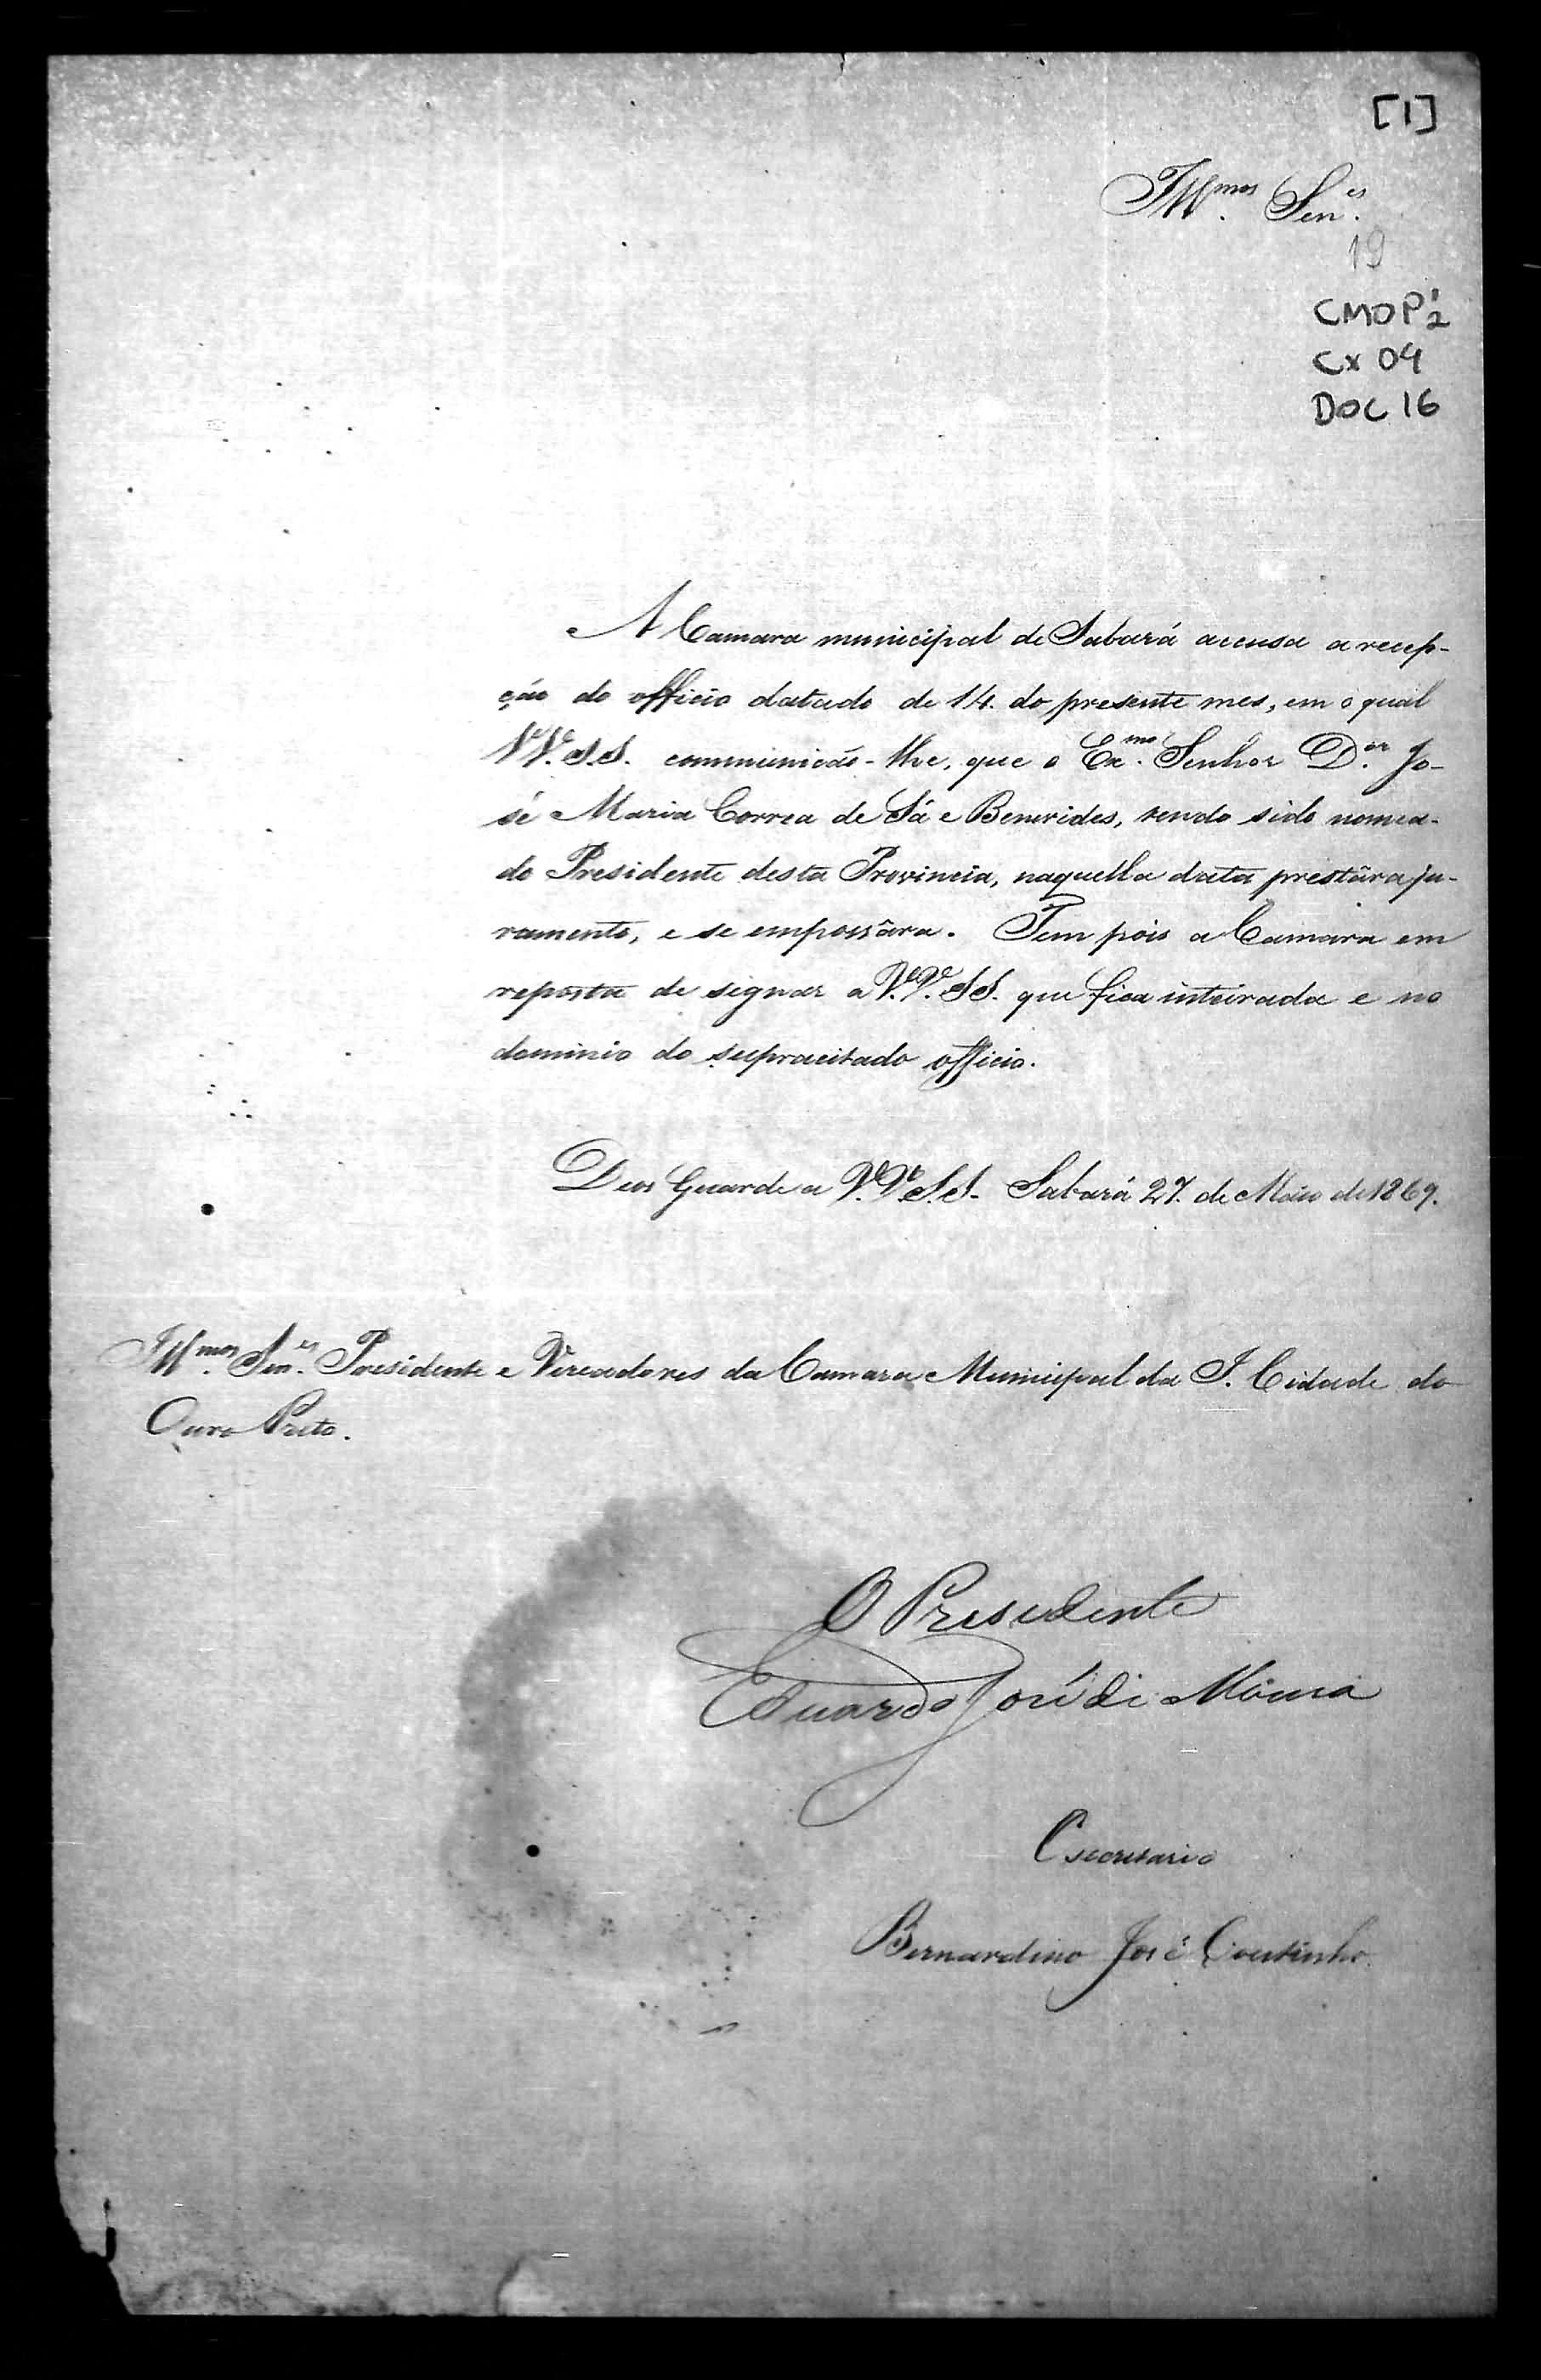 [1]
Illmos. Senes.
19
CMOP 1/2
Cx 04
DOC 16
A Camara municipal de Sabará accusa a recep-
ção do officio datado de 14. do presente mes, em o qual
VV. S.S. communicão-lhe, que o Exmo. Senhor Dor. Jo-
sé Maria Correa de Sá e Benevides, tendo sido nomea-
do Presidente desta Provincia, naquella data prestára ju-
ramento, e se empossâra. Tem pois a Camara em
reposta de signar a V.V. SS. que fica inteirada e no
dominio do supracitado officio.
Deos Guarde a V.V. S.S. Sabará 27. de Maio de 1869.
Illmos. Senes. Presidente e Vereadores da Camara Municipal da I. Cidade do
Ouro Preto.
O Presidente
Eduardo José de Moura
O secretario
Bernardino José Coutinho